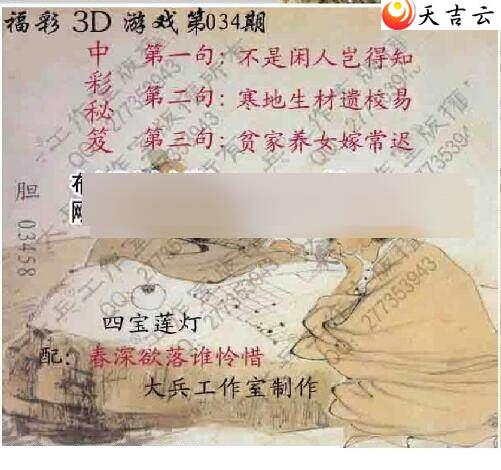 天吉云
福彩 3D 游戏第034期
中彩秘笈
第一句：不是闲人岂得知
第二句：寒地生材遗校易
第三句：贫家养女嫁常迟
胆 03458
四宝莲灯
配：春深欲落谁怜惜
大兵工作室制作
大兵工作室版权所有
QQ:277353943